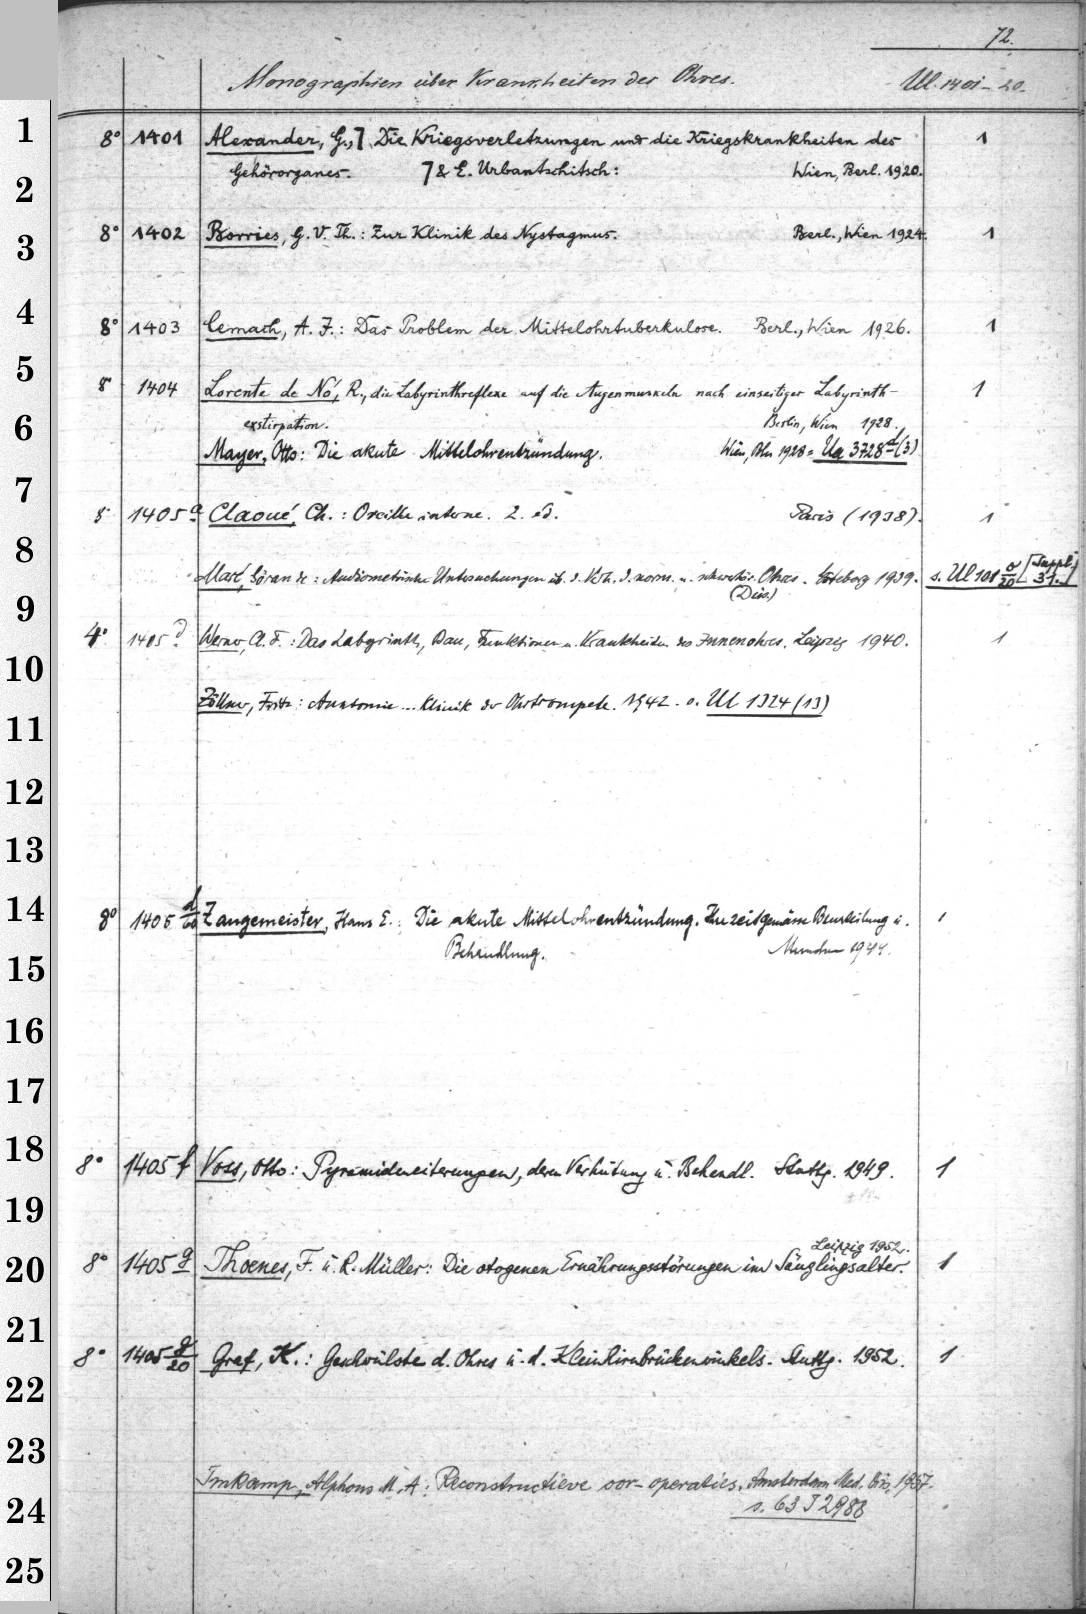 72.
Monographien über Krankheiten des Ohres. Ul. 1401-20.
1 8° 1401 Alexander, G., ⁊ Die Kriegsverletzungen und die Kriegskrankheiten des 1
2 Gehörorganes. ⁊ & E. Urbantschitsch: Wien, Berl. 1920.
3 8° 1402 Borries, G. V. Th.: Zur Klinik des Nystagmus. Berl., Wien 1924. 1
4 8° 1403 Cemach, A. J.: Das Problem der Mittelohrtuberkulose. Berl., Wien 1926. 1
5 8° 1404 Lorente de Nó, R., die Labyrinthreflexe auf die Augenmuskeln nach einseitiger Labyrinth- 1
6 exstirpation. Berlin, Wien 1928.
Mayer, Otto: Die akute Mittelohrentzündung. Wien, 1928 = Ua 3728 d (3)
7 8° 1405 a Claoué, Ch.: Oreille interne. 2. éd. Paris (1938). 1
8 Maré, Göran de: Audiometrische Untersuchungen üb. d. Verh. d. norm. u. schwerhör. Ohres. Göteborg 1939. s. Ul 108 a/20 [Suppl. 31.]
9 (Diss.)
4° 1405 Werner, Cl. F.: Das Labyrinth, Bau, Funktionen u. Krankheiten des Innenohres. Leipzig 1940. 1
10
11 Zöllner, Fritz: Anatomie ... Klinik der Ohrtrompete. 1942. s. Ul 1324 (13)
12
13
14 8° 1405 d/60 Zangemeister, Hans E.: Die akute Mittelohrentzündung. Ihre zeitgemässe Beurteilung u. 1
15 Behandlung. München 1944.
16
17
18 8° 1405 f Voss, Otto: Pyramideneiterungen, deren Verhütung u. Behandl. Stuttg. 1949. 1
19
Leipzig 1952.
20 8° 1405 g Thoenes, F. u. R. Müller: Die otogenen Ernährungsstörungen im Säuglingsalter. 1
21
8° 1405 g/20 Graf, K.: Geschwülste d. Ohres u. d. Kleinhirnbrückenwinkels. Stuttg. 1952. 1
22
23
Imkamp, Alphons M. A.: Reconstructieve oor-operaties. Amsterdam Med. Diss. 1957.
24 s. 63 J 2988
25